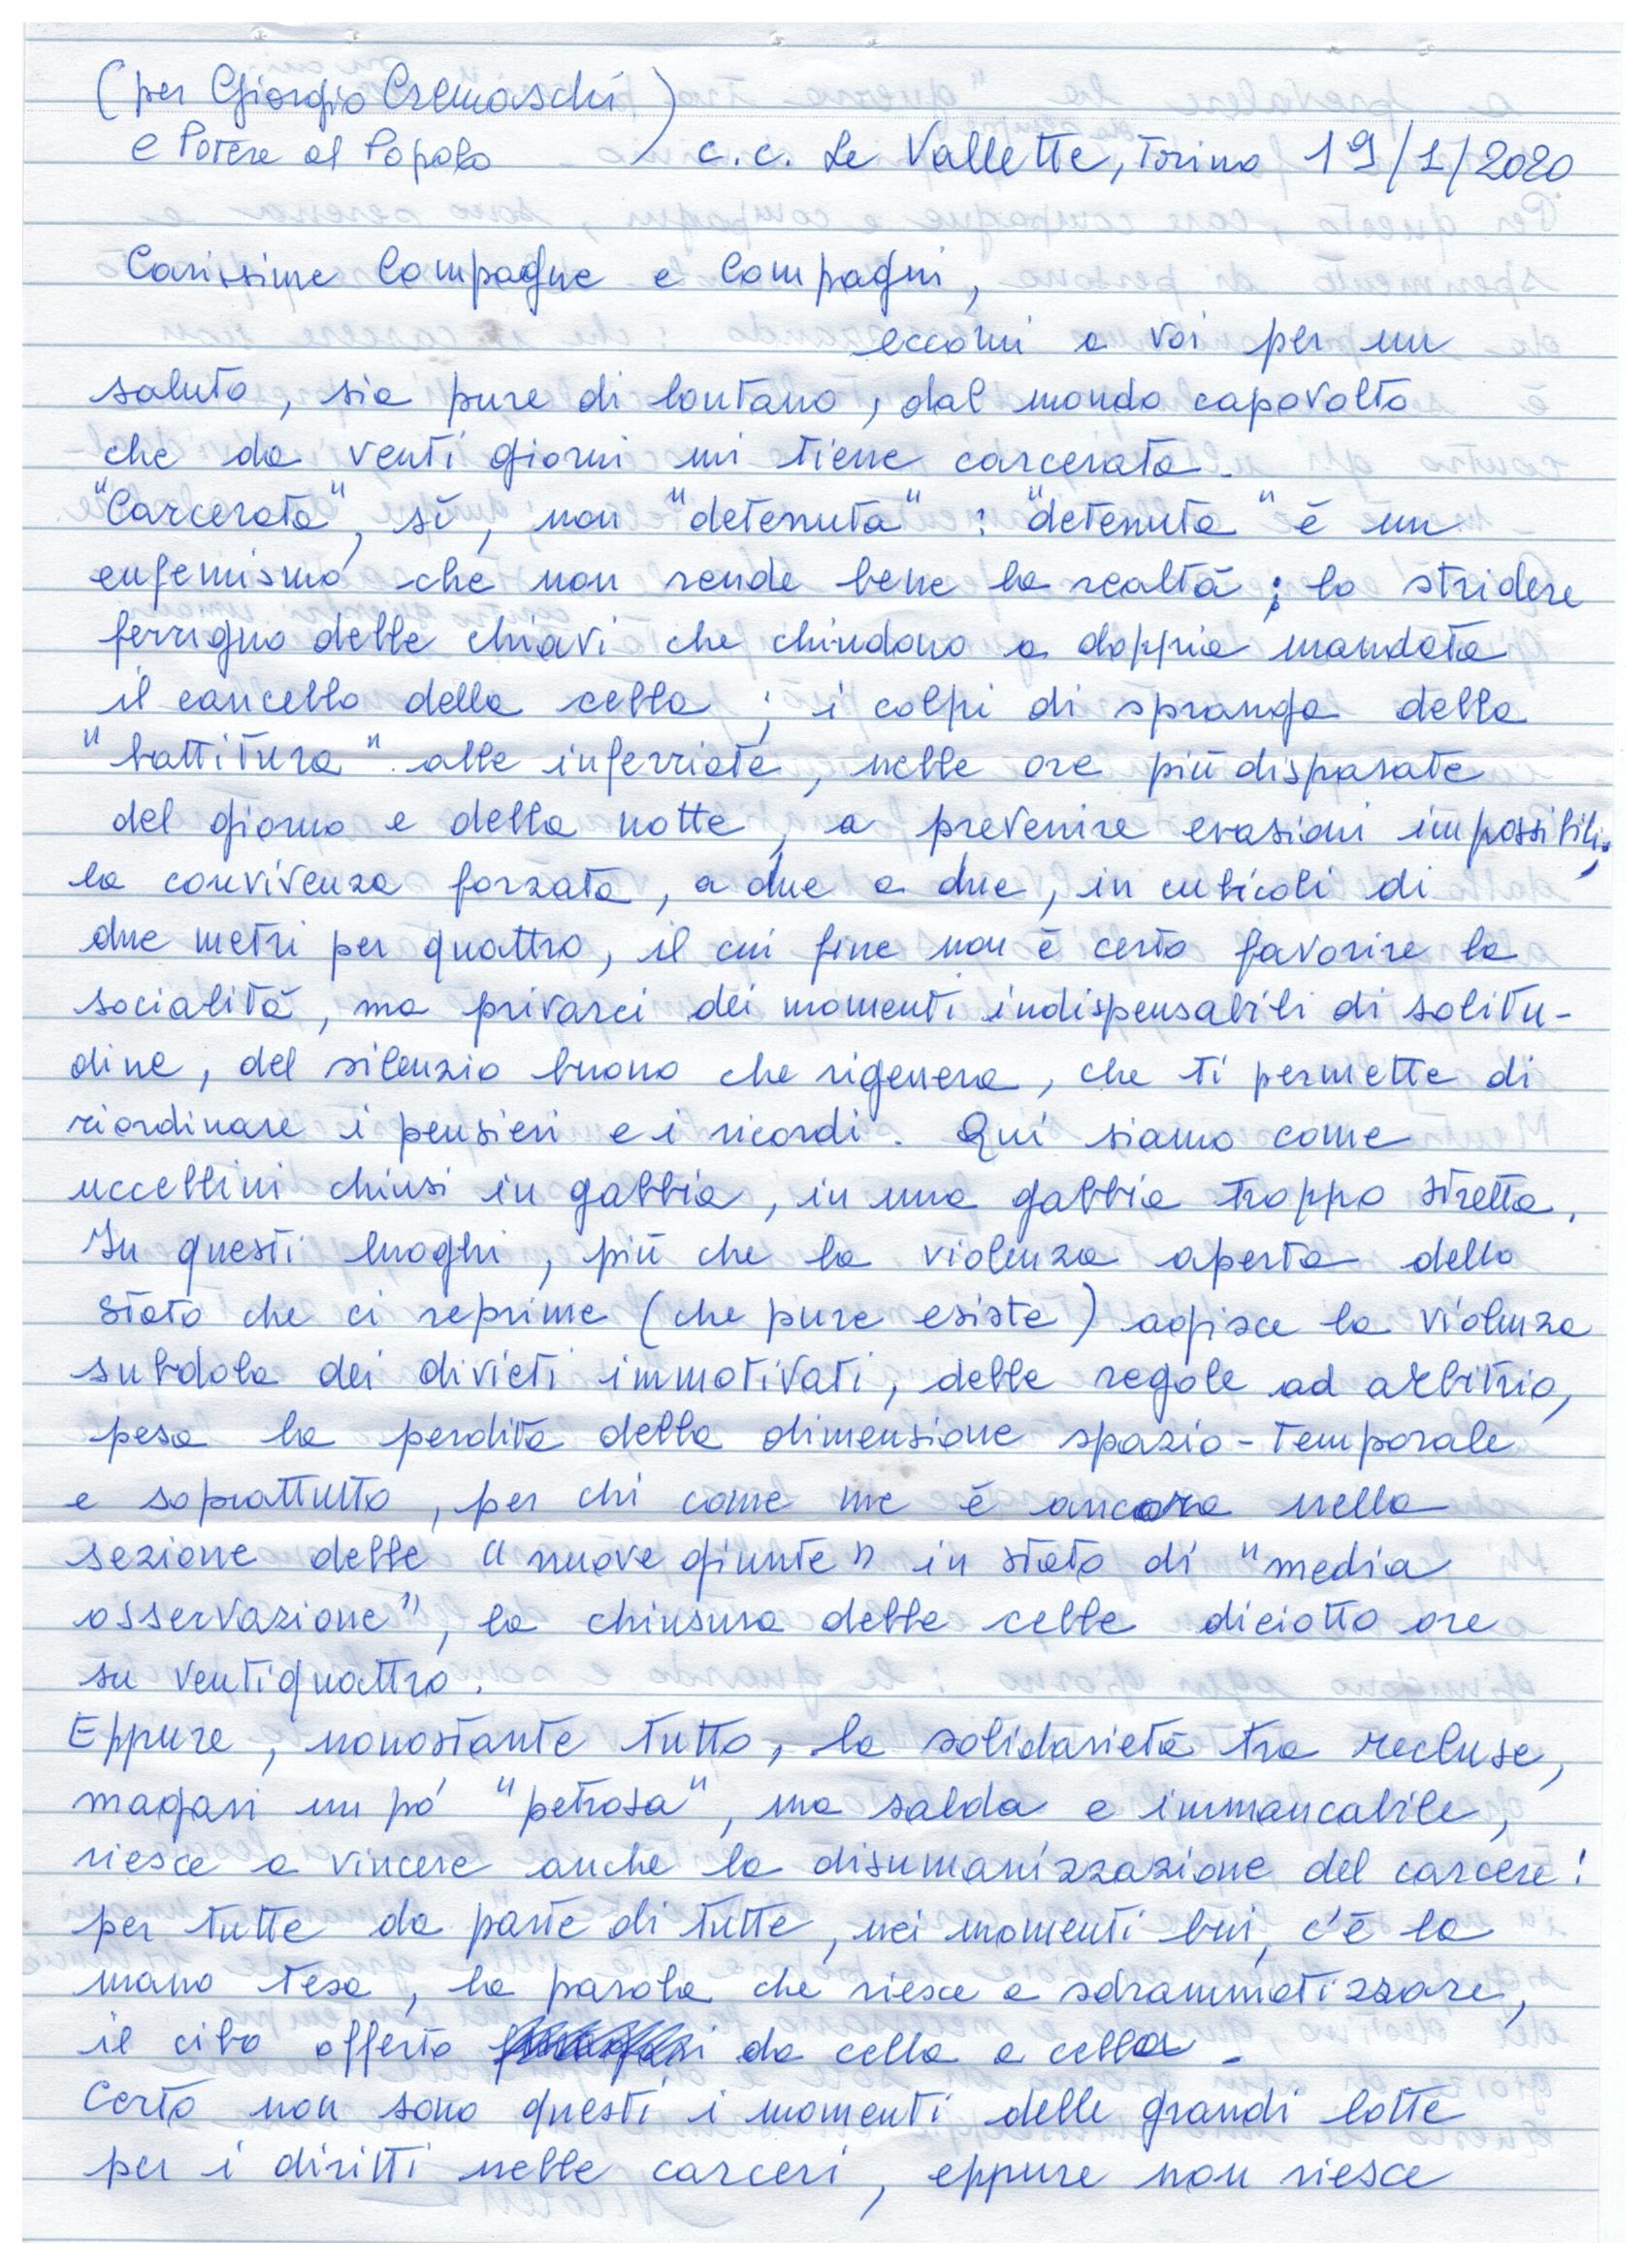 (per Giorgio Cremaschi
e Potere al Popolo) c.c. Le Vallette, Torino 19/1/2020
Carissime Compagne e Compagni,
eccomi a voi per un
saluto, sia pure di lontano, dal mondo capovolto
che da venti giorni mi tiene carcerata.
"Carcerata", sì, non "detenuta" : "detenuta" è un
eufemismo che non rende bene la realtà ; lo stridere
ferrigno delle chiavi che chiudono a doppia mandata
il cancello della cella ; i colpi di spranga della
"battitura" alle inferriate, nelle ore più disparate
del giorno e della notte, a prevenire evasioni impossibili;
la convivenza forzata, a due a due, in cubicoli di
due metri per quattro, il cui fine non è certo favorire la
socialità, ma privarci dei momenti indispensabili di solitu-
dine, del silenzio buono che rigenera, che ti permette di
riordinare i pensieri e i ricordi. Qui siamo come
uccellini chiusi in gabbia, in una gabbia troppo stretta.
In questi luoghi, più che la violenza aperta dello
Stato che ci reprime (che pure esiste) agisce la violenza
subdola dei divieti immotivati, delle regole ad arbitrio,
pesa la perdita della dimensione spazio-temporale
e soprattutto, per chi come me è ancora nella
sezione delle "nuove giunte" in stato di "media
osservazione", la chiusura delle celle diciotto ore
su ventiquattro.
Eppure, nonostante tutto, la solidarietà tra recluse,
magari un pó "petrosa", ma salda e immancabile,
riesce a vincere anche la disumanizzazione del carcere:
per tutte da parte di tutte, nei momenti bui, c'è la
mano tesa, la parola che riesce a sdrammatizzare,
il cibo offerto da cella a cella.
Certo non sono questi i momenti delle grandi lotte
per i diritti nelle carceri, eppure non riesce